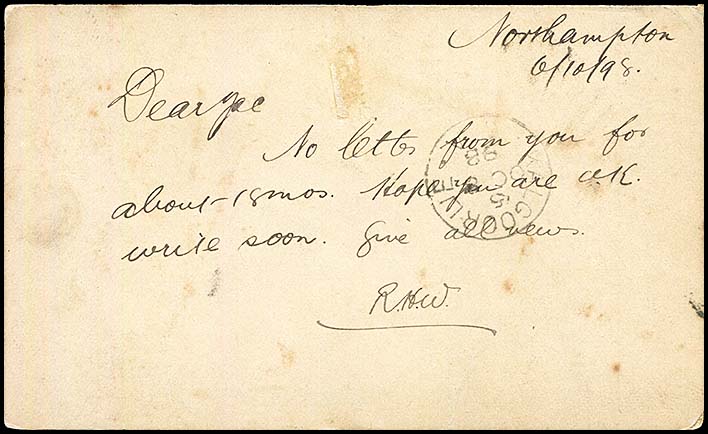 Northampton
6/10/98.
Dear Joe
No letter from you for
about 18 mos. Hope you are O.K.
write soon. Give all news.
R.H.W.
KALGOORLIE
OC 5
98